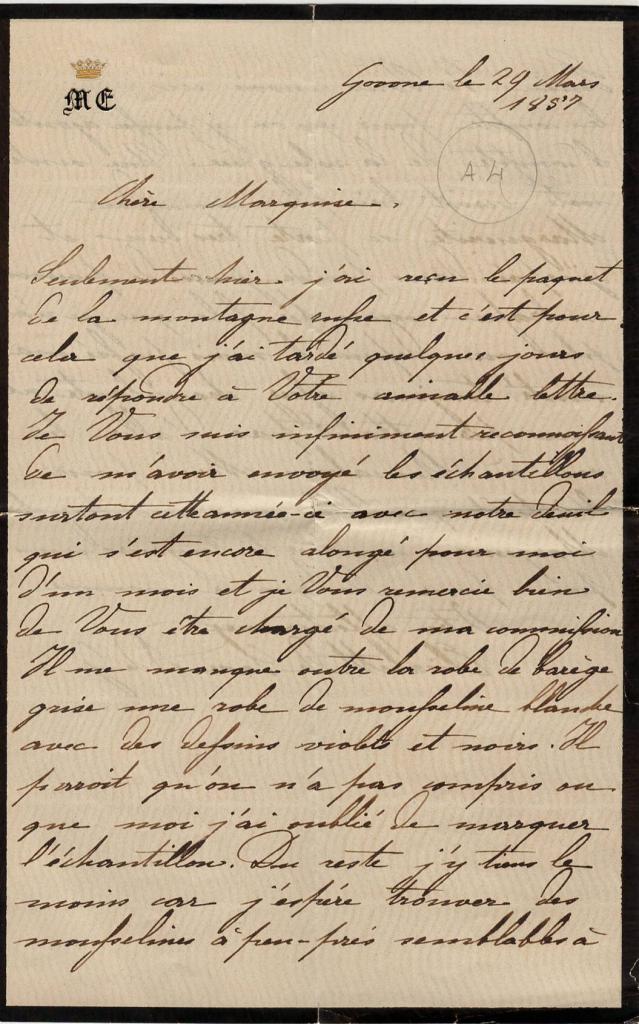 ME
Govone le 29 Mars
1857
A 4
Chère Marquise,
Seulement hier j'ai reçu le paquet
de la montagne russe et c'est pour
cela que j'ai tardé quelques jours
de répondre à Votre aimable lettre.
Je Vous suis infiniment reconnoissante
de m'avoir envoyé les échantillons
surtout cette année-ci avec notre deuil
qui s'est encore alongé pour moi
d'un mois et je Vous remercie bien
de Vous être chargé de ma commission
Il me manque outre la robe de barège
grise une robe de mousseline blanche
avec des dessins violets et noirs. Il
paroit qu'on n'a pas compris ou
que moi j'ai oublié de marquer
l'échantillon. Du reste j'y tiens le
moins car j'espère trouver des
mousselines à peu-près semblables à